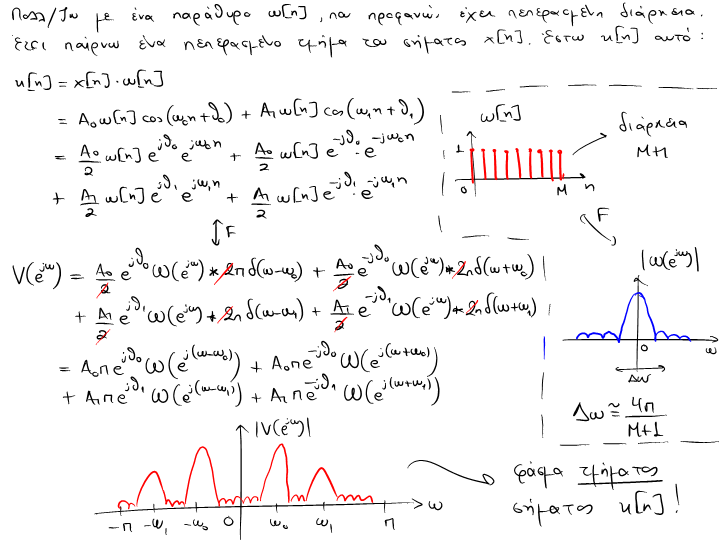 Πολλ/ζω με ένα παράθυρο w[n], που προφανώς έχει πεπερασμένη διάρκεια.
Έτσι παίρνω ένα πεπερασμένο τμήμα του σήματος x[n]. Έστω u[n] αυτό:
u[n] = x[n]·w[n]
= A₀w[n]cos(ω₀n+ϑ₀) + A₁w[n]cos(ω₁n+ϑ₁)
= A₀/2 w[n] e^{jϑ₀} e^{jω₀n} + A₀/2 w[n] e^{-jϑ₀}·e^{-jω₀n}
+ A₁/2 w[n] e^{jϑ₁} e^{jω₁n} + A₁/2 w[n] e^{-jϑ₁}·e^{-jω₁n}
↕F
w[n]
1
0
M
n
διάρκεια
M+1
F
V(e^{jω}) = A₀/2 e^{jϑ₀} W(e^{jω}) * 2πδ(ω-ω₀) + A₀/2 e^{-jϑ₀} W(e^{jω}) * 2πδ(ω+ω₀)
+ A₁/2 e^{jϑ₁} W(e^{jω}) * 2πδ(ω-ω₁) + A₁/2 e^{-jϑ₁} W(e^{jω}) * 2πδ(ω+ω₁)
= A₀π e^{jϑ₀} W(e^{j(ω-ω₀)}) + A₀π e^{-jϑ₀} W(e^{j(ω+ω₀)})
+ A₁π e^{jϑ₁} W(e^{j(ω-ω₁)}) + A₁π e^{-jϑ₁} W(e^{j(ω+ω₁)})
|W(e^{jω})|
0
ω
Δω
Δω ≅ 4π/(M+1)
|V(e^{jω})|
-π -ω₁ -ω₀ 0 ω₀ ω₁ π ω
φάσμα τμήματος
σήματος u[n]!